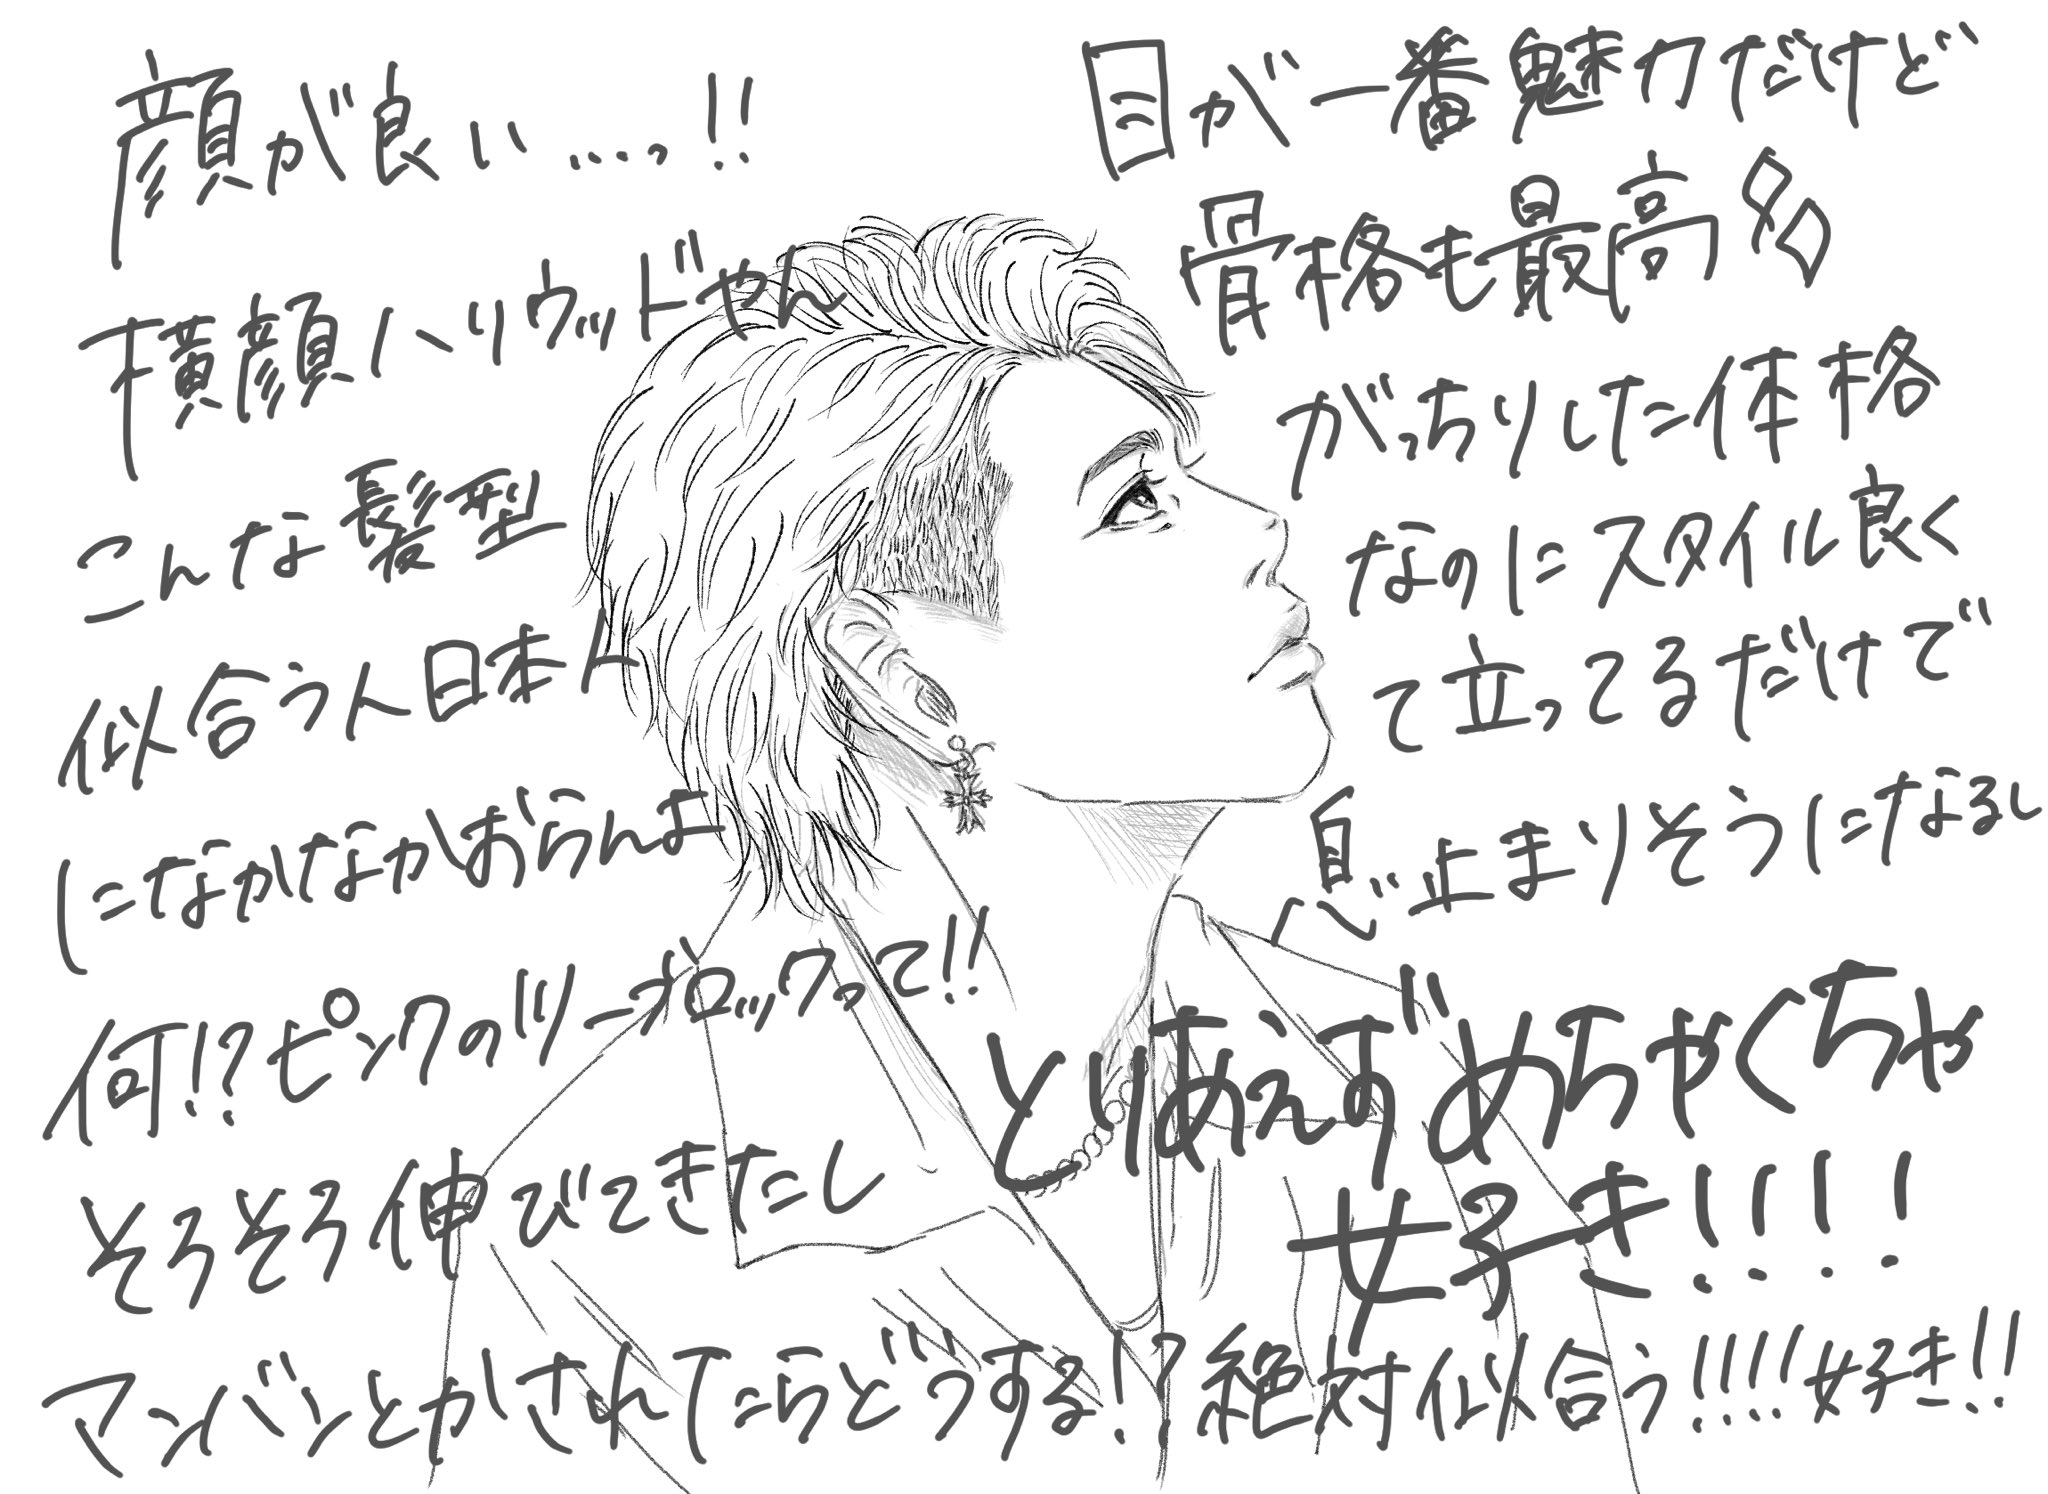 顔が良い…っ!!
横顔ハリウッドやん
こんな髪型
似合う人日本人
になかなかおらんよ
何!?ピンクのツーブロックって!!
そろそろ伸びてきたし
マンバンとかされてたらどうする!?絶対似合う!!!!好き!!
目が一番魅力だけど
骨格も最高多
がっちりした体格
なのにスタイル良く
て立ってるだけで
息止まりそうになるし
とりあえずめちゃくちゃ
好き!!!!